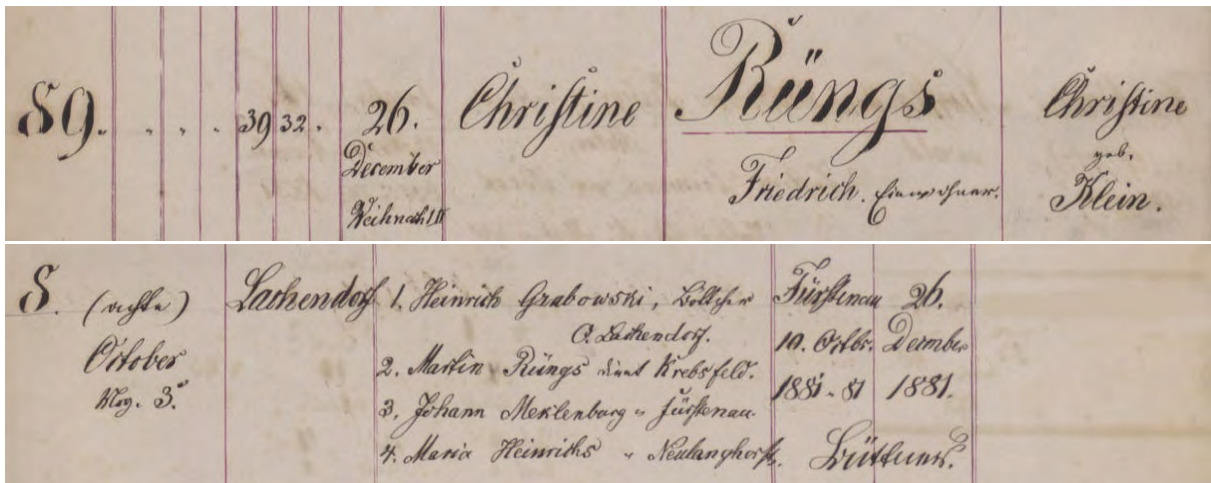 89. " " " " 39 32. "
26.
December
Weihnacht II
Christine
Rüngs
Friedrich. Einwohner.
Christine
geb.
Klein.
8. (achte)
October
Mrg. 3.
Lachendorf
1. Heinrich Grabowski, Böttcher
C. Lachendorf.
2. Martin Rüngs dient Krebsfeld.
3. Johann Meklenburg " Fürstenau.
4. Maria Heinrichs " Neulanghorst.
Fürstenau
10. Octbr.
1881. 81
26.
December
1881.
Büttner.